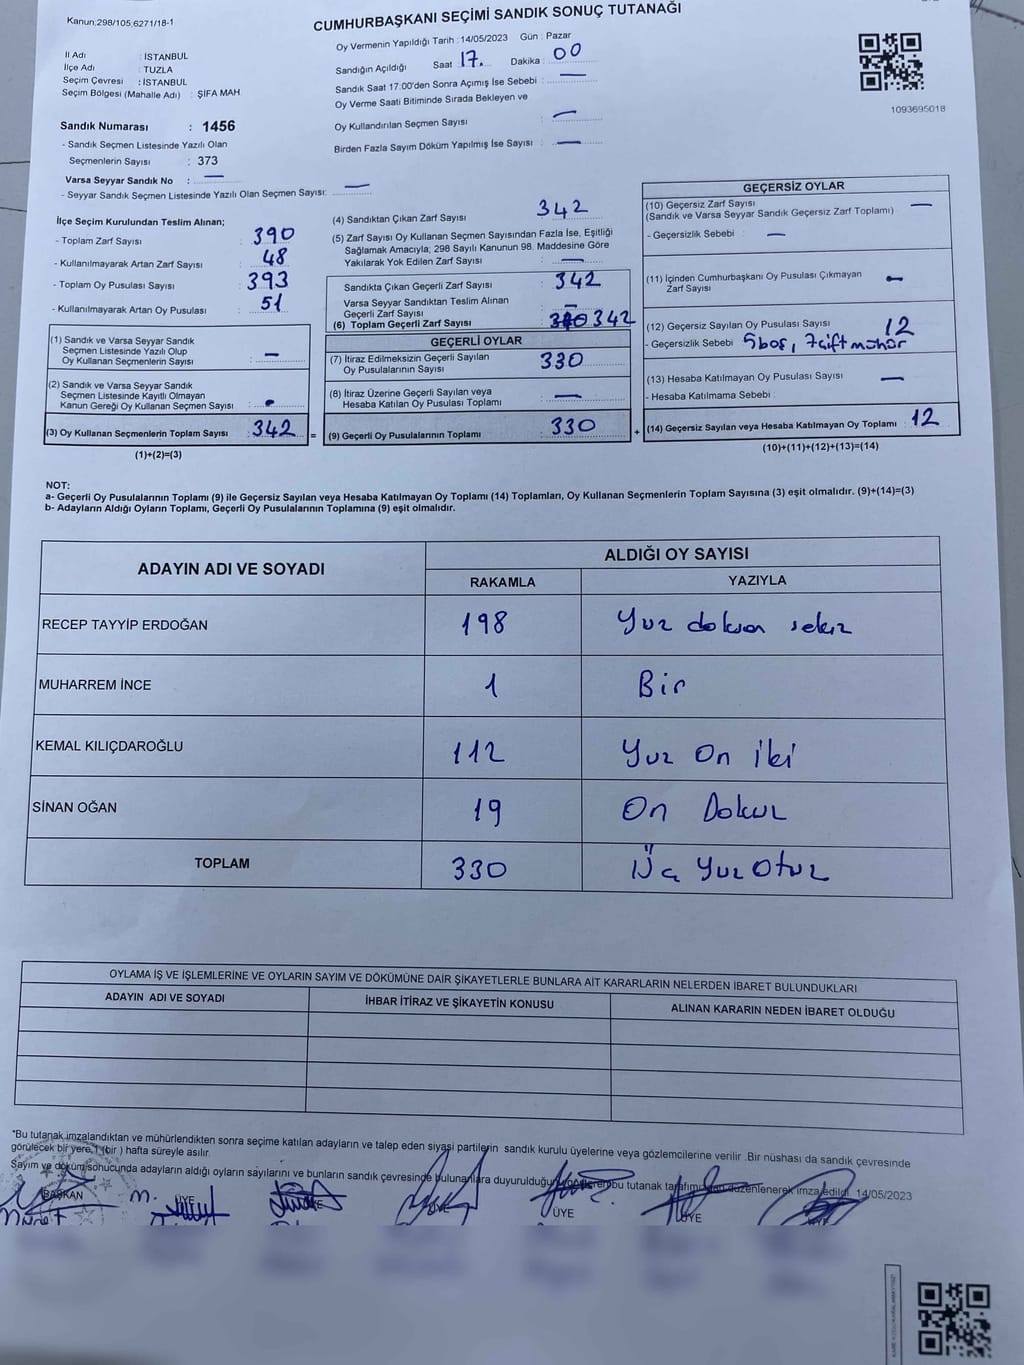 Kanun:298/105,6271/18-1
CUMHURBAŞKANI SEÇİMİ SANDIK SONUÇ TUTANAĞI
İl Adı : İSTANBUL
İlçe Adı : TUZLA
Seçim Çevresi : İSTANBUL
Seçim Bölgesi (Mahalle Adı) : ŞİFA MAH
Oy Vermenin Yapıldığı Tarih : 14/05/2023 Gün : Pazar
Sandığın Açıldığı Saat 17. Dakika : 00
Sandık Saat 17:00'den Sonra Açımış İse Sebebi : —
Oy Verme Saati Bitiminde Sırada Bekleyen ve
Oy Kullandırılan Seçmen Sayısı : —
Birden Fazla Sayım Döküm Yapılmış İse Sayısı : —
1093695018
Sandık Numarası : 1456
- Sandık Seçmen Listesinde Yazılı Olan
Seçmenlerin Sayısı : 373
Varsa Seyyar Sandık No : —
- Seyyar Sandık Seçmen Listesinde Yazılı Olan Seçmen Sayısı: —
İlçe Seçim Kurulundan Teslim Alınan;
- Toplam Zarf Sayısı : 390
- Kullanılmayarak Artan Zarf Sayısı : 48
- Toplam Oy Pusulası Sayısı : 393
- Kullanılmayarak Artan Oy Pusulası : 51
(1) Sandık ve Varsa Seyyar Sandık
Seçmen Listesinde Yazılı Olup
Oy Kullanan Seçmenlerin Sayısı : —
(2) Sandık ve Varsa Seyyar Sandık
Seçmen Listesinde Kayıtlı Olmayan
Kanun Gereği Oy Kullanan Seçmen Sayısı :
(3) Oy Kullanan Seçmenlerin Toplam Sayısı : 342 =
(1)+(2)=(3)
(4) Sandıktan Çıkan Zarf Sayısı : 342
(5) Zarf Sayısı Oy Kullanan Seçmen Sayısından Fazla İse, Eşitliği
Sağlamak Amacıyla; 298 Sayılı Kanunun 98. Maddesine Göre
Yakılarak Yok Edilen Zarf Sayısı : —
Sandıkta Çıkan Geçerli Zarf Sayısı : 342
Varsa Seyyar Sandıktan Teslim Alınan
Geçerli Zarf Sayısı : —
(6) Toplam Geçerli Zarf Sayısı : 342
GEÇERLİ OYLAR
(7) İtiraz Edilmeksizin Geçerli Sayılan
Oy Pusulalarının Sayısı : 330
(8) İtiraz Üzerine Geçerli Sayılan veya
Hesaba Katılan Oy Pusulası Toplamı : —
(9) Geçerli Oy Pusulalarının Toplamı : 330 +
GEÇERSİZ OYLAR
(10) Geçersiz Zarf Sayısı : —
(Sandık ve Varsa Seyyar Sandık Geçersiz Zarf Toplamı)
- Geçersizlik Sebebi : —
(11) İçinden Cumhurbaşkanı Oy Pusulası Çıkmayan
Zarf Sayısı : —
(12) Geçersiz Sayılan Oy Pusulası Sayısı : 12
- Geçersizlik Sebebi 5 boş, 7 çift mühür
(13) Hesaba Katılmayan Oy Pusulası Sayısı : —
- Hesaba Katılmama Sebebi :
(14) Geçersiz Sayılan veya Hesaba Katılmayan Oy Toplamı : 12
(10)+(11)+(12)+(13)=(14)
NOT:
a- Geçerli Oy Pusulalarının Toplamı (9) ile Geçersiz Sayılan veya Hesaba Katılmayan Oy Toplamı (14) Toplamları, Oy Kullanan Seçmenlerin Toplam Sayısına (3) eşit olmalıdır. (9)+(14)=(3)
b- Adayların Aldığı Oyların Toplamı, Geçerli Oy Pusulalarının Toplamına (9) eşit olmalıdır.
ADAYIN ADI VE SOYADI
ALDIĞI OY SAYISI
RAKAMLA YAZIYLA
RECEP TAYYİP ERDOĞAN 198 Yuz doksan sekiz
MUHARREM İNCE 1 Bir
KEMAL KILIÇDAROĞLU 112 Yuz On iki
SİNAN OĞAN 19 On Dokuz
TOPLAM 330 Üç Yuz Otuz
OYLAMA İŞ VE İŞLEMLERİNE VE OYLARIN SAYIM VE DÖKÜMÜNE DAİR ŞİKAYETLERLE BUNLARA AİT KARARLARIN NELERDEN İBARET BULUNDUKLARI
ADAYIN ADI VE SOYADI İHBAR İTİRAZ VE ŞİKAYETİN KONUSU ALINAN KARARIN NEDEN İBARET OLDUĞU
*Bu tutanak imzalandıktan ve mühürlendikten sonra seçime katılan adayların ve talep eden siyasi partilerin sandık kurulu üyelerine veya gözlemcilerine verilir .Bir nüshası da sandık çevresinde
görülecek bir yere 1 (bir ) hafta süreyle asılır.
Sayım ve döküm sonucunda adayların aldığı oyların sayılarını ve bunların sandık çevresinde bulunanlara duyurulduğunu bu tutanak düzenlenerek imza edildi. 14/05/2023
BAŞKAN ÜYE ÜYE ÜYE ÜYE